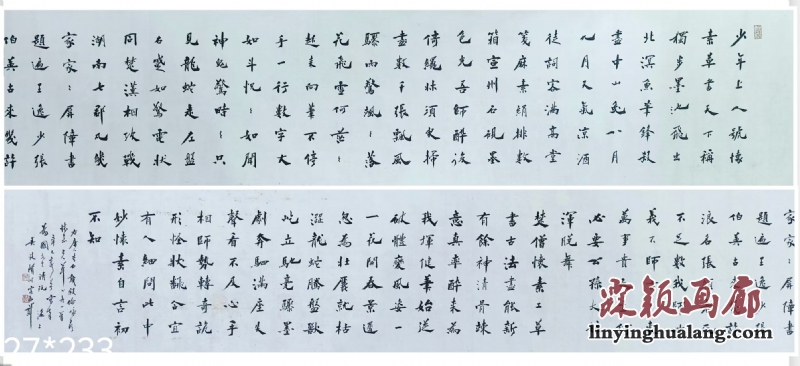 少年上人號懷
素草書天下稱
獨步墨池飛出
北溟魚筆鋒殺
盡中山兔八月
九月天氣涼酒
徒詞客滿高堂
箋麻素絹排數
箱宣州石硯墨
色光吾師醉後
倚繩床須臾掃
盡數千張飄風
驟雨驚颯〻落
花飛雪何茫〻
起來向筆不停
手一行數字大
如斗恍〻如聞
神鬼驚時〻只
見龍蛇走左盤
右蹙如驚電狀
同楚漢相攻戰
湖南七郡凡幾
家家〻屏障書
題遍王逸少張
伯英古來幾許
家家〻屏障書
題遍王逸少張
伯英古來幾許
浪名張
不足數我師
義不師
萬事貴
必要公孫大
渾脫舞
楚僧懷素工草
書古法盡能新
有餘神清骨竦
意真率醉來為
我揮健筆始從
破體變風姿一
一花開春景遲
忽為壯麗就枯
澀龍蛇騰盤獸
屹立馳毫驟墨
劇奔駟滿座失
聲看不及心手
相師勢轉奇詭
形怪狀翻合宜
有人細問此中
妙懷素自言初
不知
27*233
霖颖画廊
linyinghualang.com